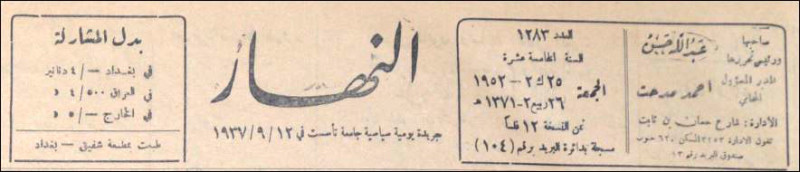 صاحبها
ورئيس تحريرها
عبد الله حسن
المدير المسؤول
الحالي
احمد مدحت
الادارة: شارع حسان بن ثابت
تلفون الادارة ٣٢٥٣ السكن ٦٢٠ جنوب
صندوق البريد رقم ١٣
العدد ١٢٨٣
السنة الخامسة عشرة
الجمعة
٢٥ ك٢ – ١٩٥٢
٢٦ ربيع٢ – ١٣٧١ هـ
ثمن النسخة ١٢ فلساً
مسجلة بدائرة البريد برقم (١٠٤)
النهار
جريدة يومية سياسية جامعة تأسست في ١٩٣٧/٩/١٢
بدل المشاركة
في بغداد –/٤ دنانير
في العراق ٥٠٠/٤ »
في الخارج –/٥ »
طبعت بمطبعة شفيق – بغداد